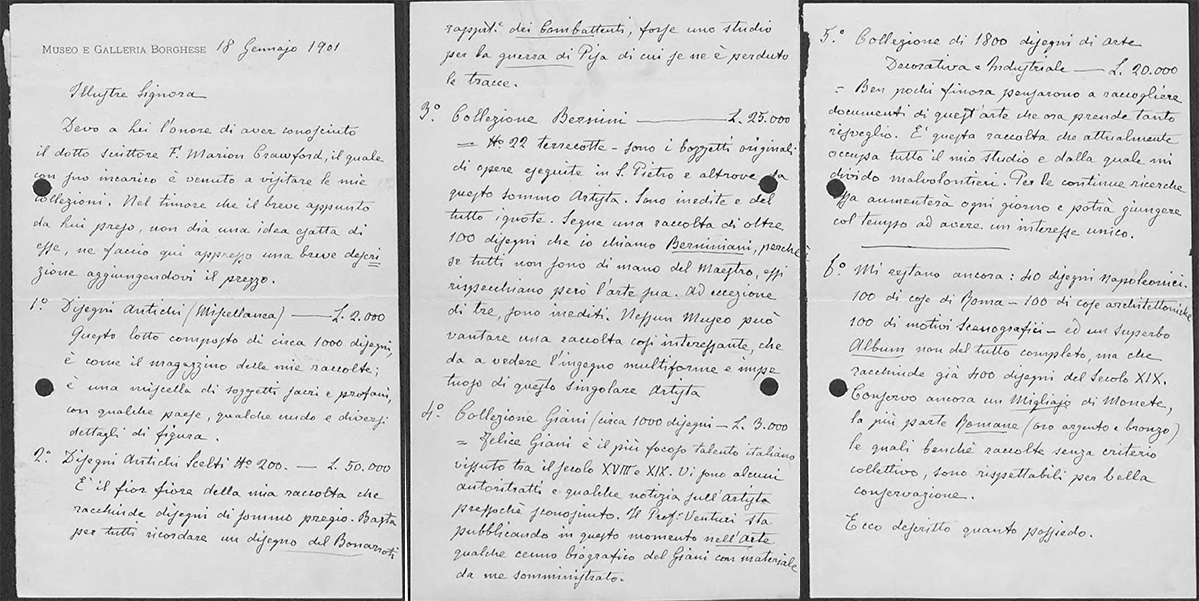 MUSEO E GALLERIA BORGHESE 18 Gennajo 1901
Illustre Signora
Devo a Lei l'onore di aver conosciuto
il dotto scrittore F. Marion Crawford, il quale
con suo incarico è venuto a visitare le mie
collezioni. Nel timore che il breve appunto
da lui preso, non dia una idea esatta di
esse, ne faccio qui appresso una breve descri
zione aggiungendovi il prezzo.
1.° Disegni Antichi (Miscellanea) — L. 2.000
Questo lotto composto di circa 1000 disegni,
è come il magazzino delle mie raccolte;
è una miscella di soggetti sacri e profani,
con qualche paese, qualche nudo e diversi
dettagli di figura.
2.° Disegni Antichi Scelti N° 200. — L. 50.000
È il fior fiore della mia raccolta che
racchiude disegni di sommo pregio. Basta
per tutti ricordare un disegno del Bonarroti
rappnte. dei Combattenti, forse uno studio
per la guerra di Pisa di cui se ne è perduto
le tracce.
3.° Collezione Bernini — L. 25.000
= N° 22 terrecotte – sono i bozzetti originali
di opere eseguite in S. Pietro e altrove da
questo sommo Artista. Sono inedite e del
tutto ignote. Segue una raccolta di oltre
100 disegni che io chiamo Berniniani, perchè
se tutti non sono di mano del Maestro, essi
rispecchiano però l'arte sua. Ad eccezione
di tre, sono inediti. Nessun Museo può
vantare una raccolta così interessante, che
da a vedere l'ingegno multiforme e impe
tuoso di questo singolare Artista
4.° Collezione Giani (circa 1000 disegni – L. 3.000
= Felice Giani è il più focoso talento italiano
vissuto tra il secolo XVIII e XIX. Vi sono alcuni
autoritratti e qualche notizia sull'Artista
pressochè sconosciuto. Il Prof. Venturi sta
pubblicando in questo momento nell'Arte
qualche cenno biografico del Giani con materiale
da me somministrato.
5.° Collezione di 1800 disegni di arte
Decorativa e Industriale — L. 20.000
= Ben pochi finora pensarono a raccogliere
documenti di quest'arte che ora prende tanto
risveglio. È questa raccolta che attualmente
occupa tutto il mio studio e dalla quale mi
divido malvolontieri. Per le continue ricerche
essa aumenterà ogni giorno e potrà giungere
col tempo ad avere un interesse unico.
6.° Mi restano ancora: 40 disegni napoleonici.
100 di cose di Roma – 100 di cose architettoniche
100 di motivi Scenografici – ed un superbo
Album non del tutto completo, ma che
racchiude già 400 disegni del Secolo XIX.
Conservo ancora un Migliajo di Monete,
la più parte Romane (oro argento e bronzo)
le quali benchè raccolte senza criterio
collettivo, sono rispettabili per bella
conservazione.
Ecco descritto quanto possiedo.